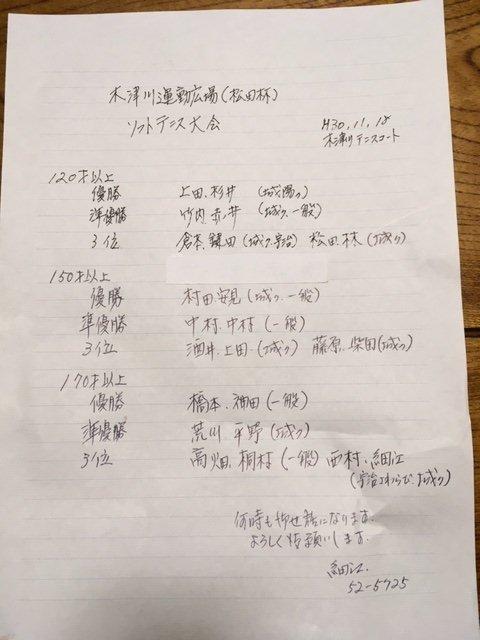 木津川運動広場(松田杯)
ソフトテニス大会
H30,11,18
木津川テニスコート
120才以上
優勝 上田、杉井 (城陽ク)
準優勝 竹内 赤井 (城ク、一般)
3位 倉本、鍵田 (城ク、宇治) 松田、林 (城ク)
150才以上
優勝 村田、安見 (城ク、一般)
準優勝 中村、中村 (一般)
3位 酒井、上田、(城ク) 藤原、柴田 (城ク)
170才以上
優勝 橋本、福田 (一般)
準優勝 荒川 平野 (城ク)
3位 高畑、桐村 (一般) 西村、細江
(宇治さわらび、城ク)
何時もお世話になります。
よろしくお願いします。
細江、
52-5725